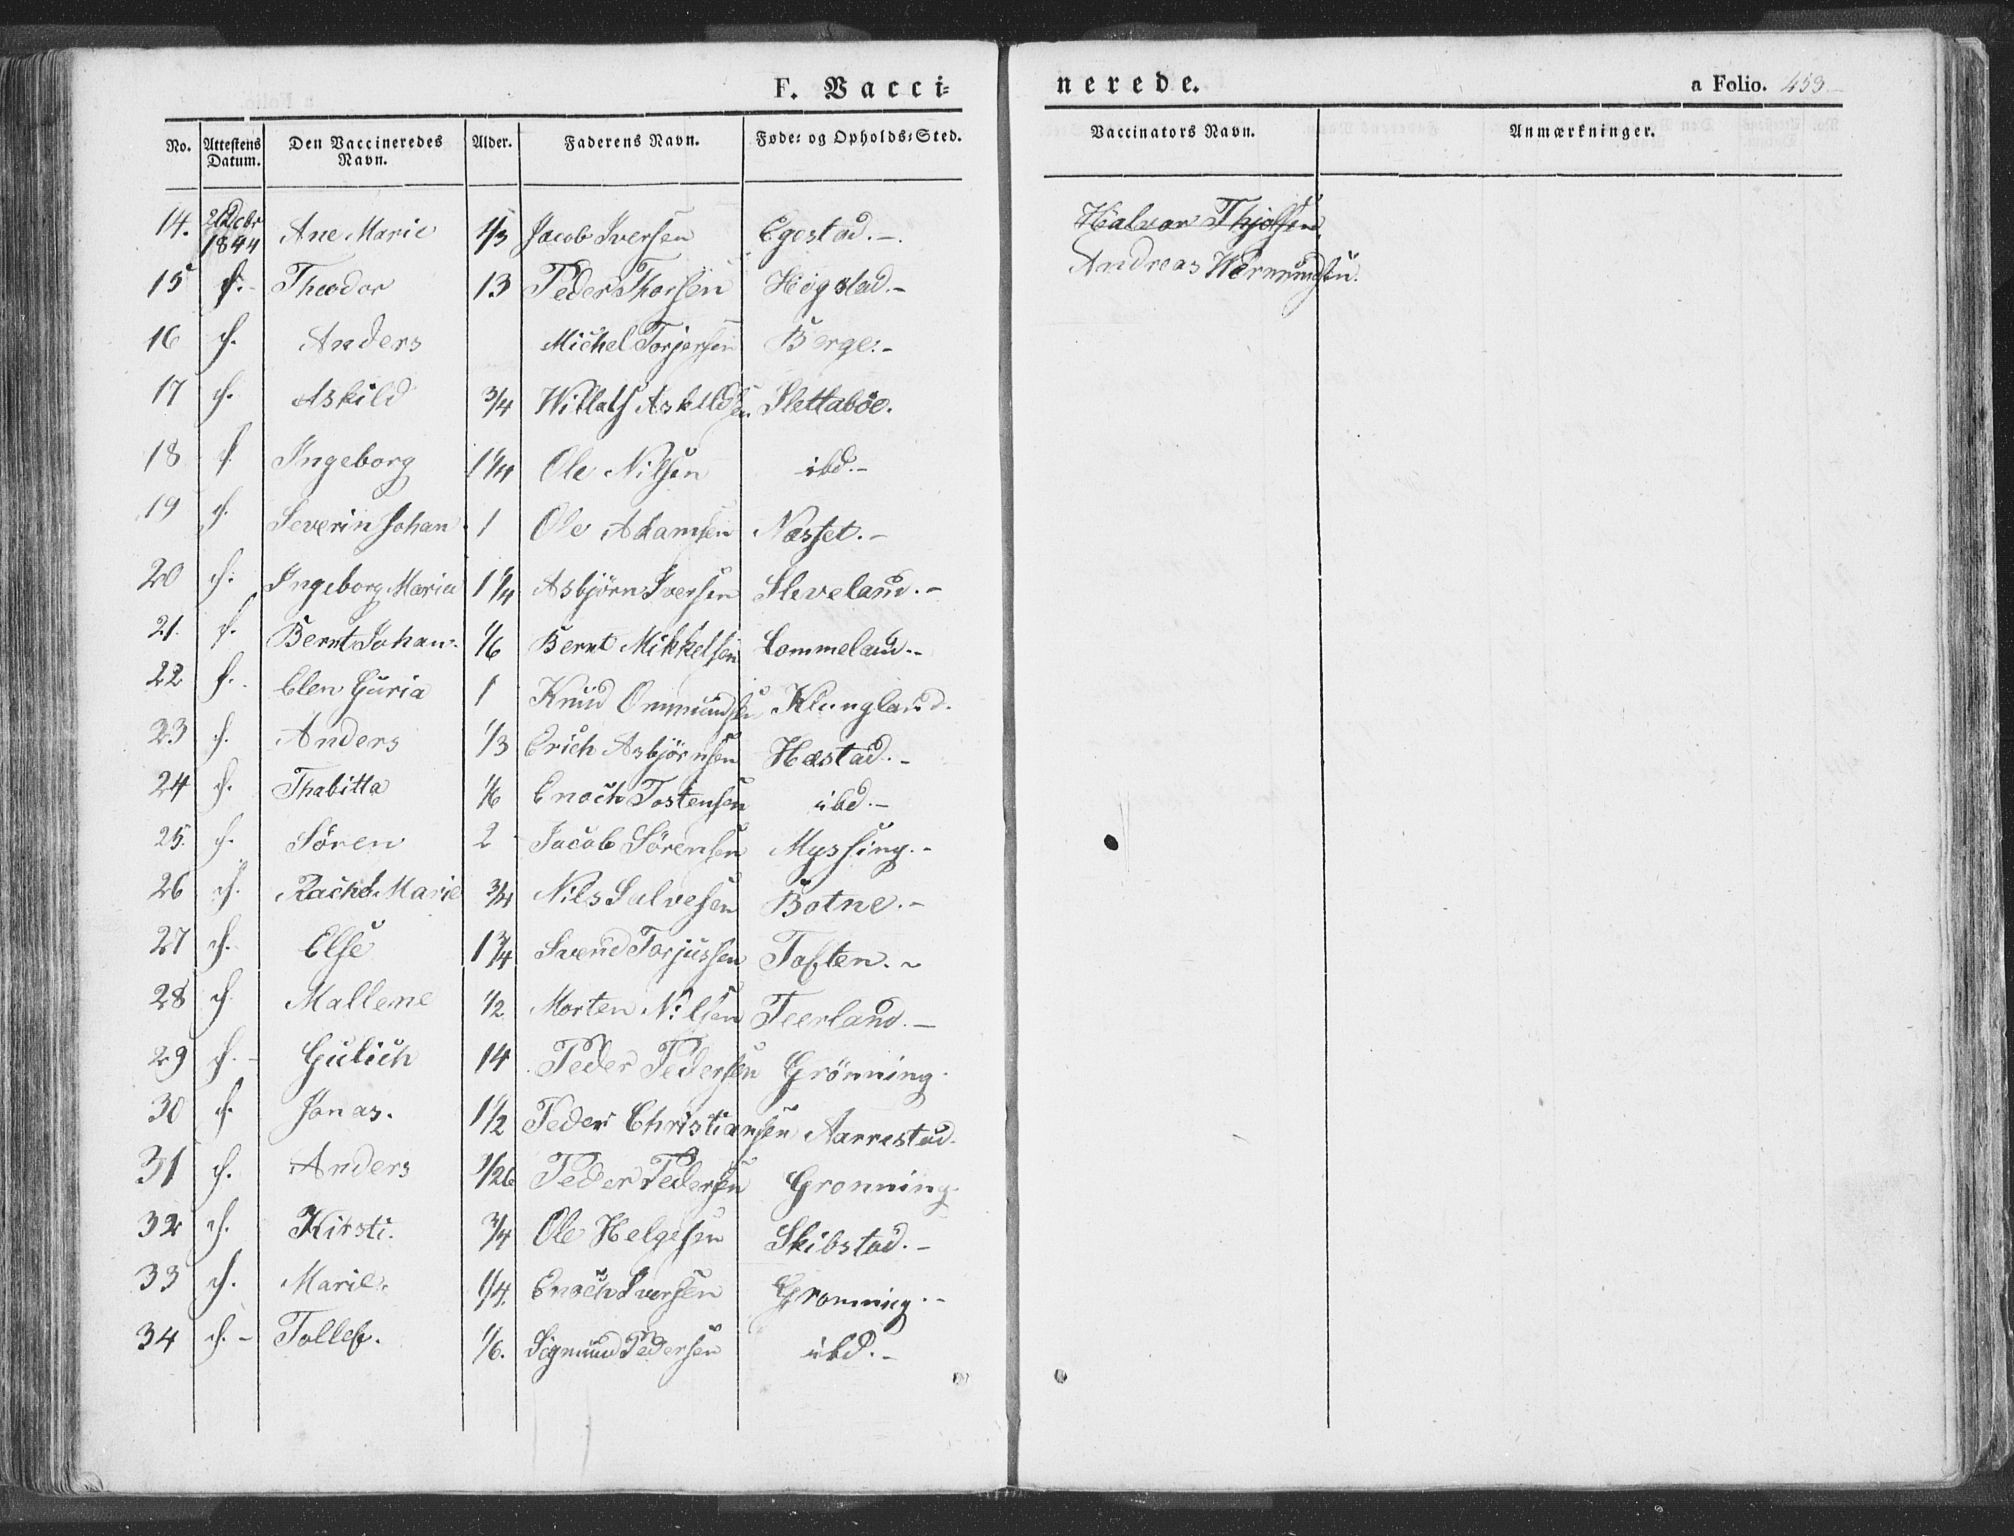 F. Vacci=
nerede.
a Folio. 453
No. Attestens Datum. Den Vaccineredes Navn. Alder. Faderens Navn. Føde= og Opholds=Sted. Vaccinators Navn. Anmærkninger.
14. 1844 Ane Marie 1/3 Jacob Iversen Egestad. Halvor
15 Theodor 13 Peder Thorsen Høgstad. Andreas
16 Anders Michel Torjersen Berge.
17 Askild 3/4 Askildsen Slettabøe.
18 Ingeborg 1 1/4 Ole Nilsen ibd.
19 Severin Johan 1 Ole Adamsen Næsset.
20 Ingeborg Maria 1 1/4 Asbjørn Iversen Sleveland.
21. Bernt Johan. 1/6 Bernt Mikkelsen Lommeland.
22 Elen Guria 1 Knud Ommundsen Klungland.
23 Anders 1/3 Erich Asbjørnsen Hæstad.
24 Thabitta 1/6 Enoch Tostensen ibd.
25. Sören 2 Jacob Sörensen Myssing.
26 Rachel Marie 3/4 Nils Salvesen Botne.
27 Else 1 3/4 Svend Torjussen Toften.
28 Mallene 1/2 Morten Nilsen Teerland.
29 Gulich 14 Peder Pedersen Grönning.
30 Jonas. 1 1/2 Peder Christiansen Aarrestad.
31 Anders 1/26 Peder Pedersen Gronning.
32 Kirsti. 3/4 Ole Helgesen Skibstad.
33 Marie. 1/4. Enoch Iversen Gronning.
34 Tollef. 1/6. Sigmund Pedersen ibd.